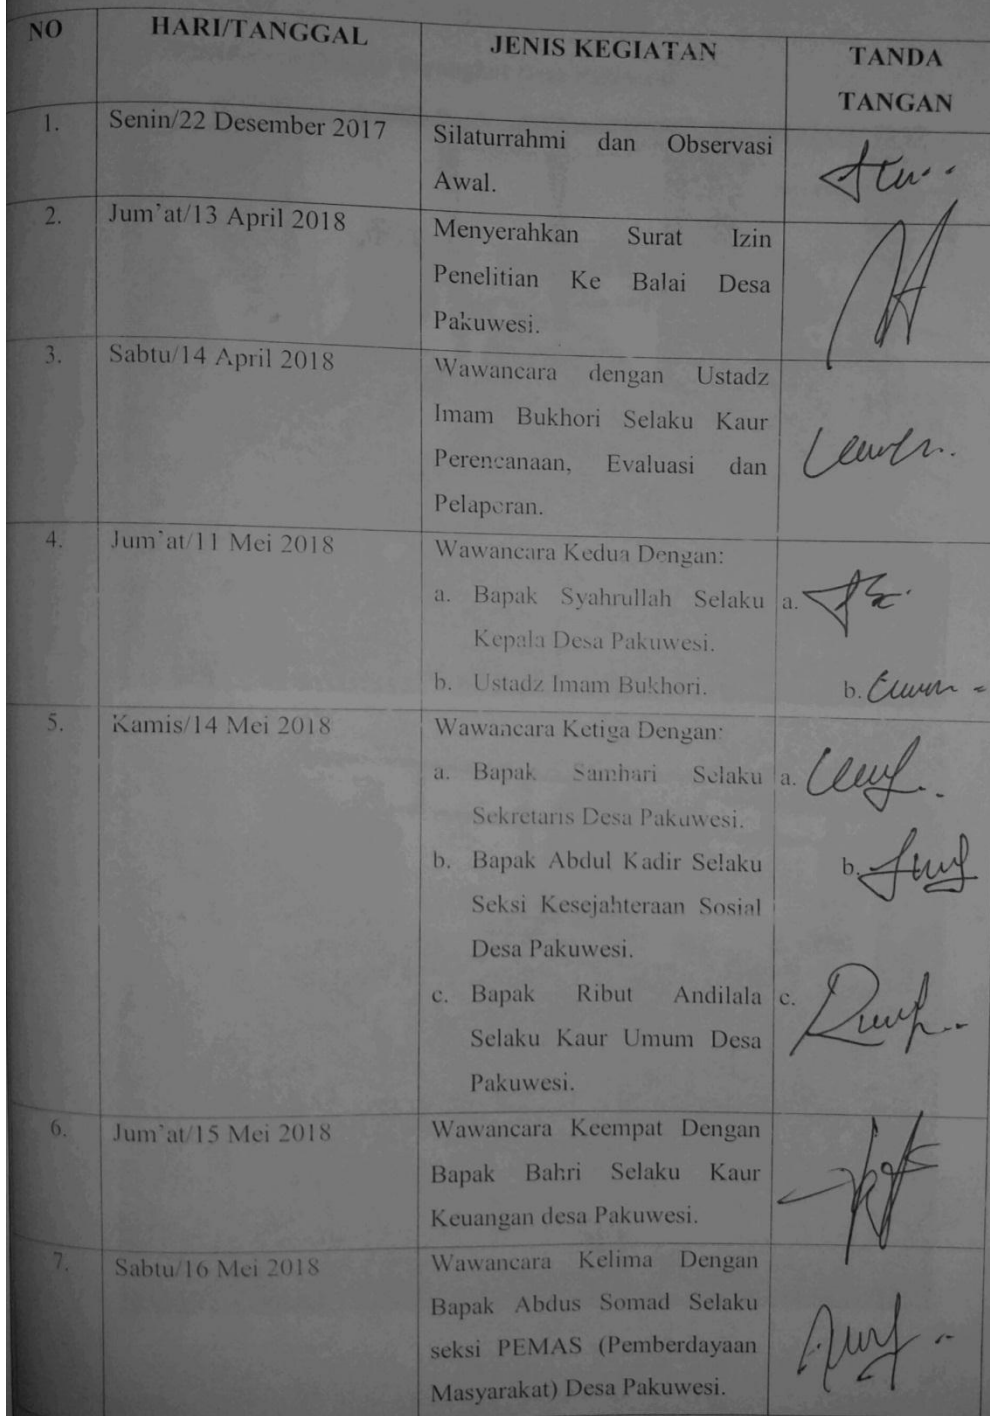 NO HARI/TANGGAL JENIS KEGIATAN TANDA
TANGAN
1. Senin/22 Desember 2017 Silaturrahmi dan Observasi
Awal.
2. Jum'at/13 April 2018 Menyerahkan Surat Izin
Penelitian Ke Balai Desa
Pakuwesi.
3. Sabtu/14 April 2018 Wawancara dengan Ustadz
Imam Bukhori Selaku Kaur
Perencanaan, Evaluasi dan
Pelaporan.
4. Jum'at/11 Mei 2018 Wawancara Kedua Dengan:
a. Bapak Syahrullah Selaku a.
Kepala Desa Pakuwesi.
b. Ustadz Imam Bukhori. b.
5. Kamis/14 Mei 2018 Wawancara Ketiga Dengan:
a. Bapak Samhari Selaku a.
Sekretaris Desa Pakuwesi.
b. Bapak Abdul Kadir Selaku b.
Seksi Kesejahteraan Sosial
Desa Pakuwesi.
c. Bapak Ribut Andilala c.
Selaku Kaur Umum Desa
Pakuwesi.
6. Jum'at/15 Mei 2018 Wawancara Keempat Dengan
Bapak Bahri Selaku Kaur
Keuangan desa Pakuwesi.
7. Sabtu/16 Mei 2018 Wawancara Kelima Dengan
Bapak Abdus Somad Selaku
seksi PEMAS (Pemberdayaan
Masyarakat) Desa Pakuwesi.